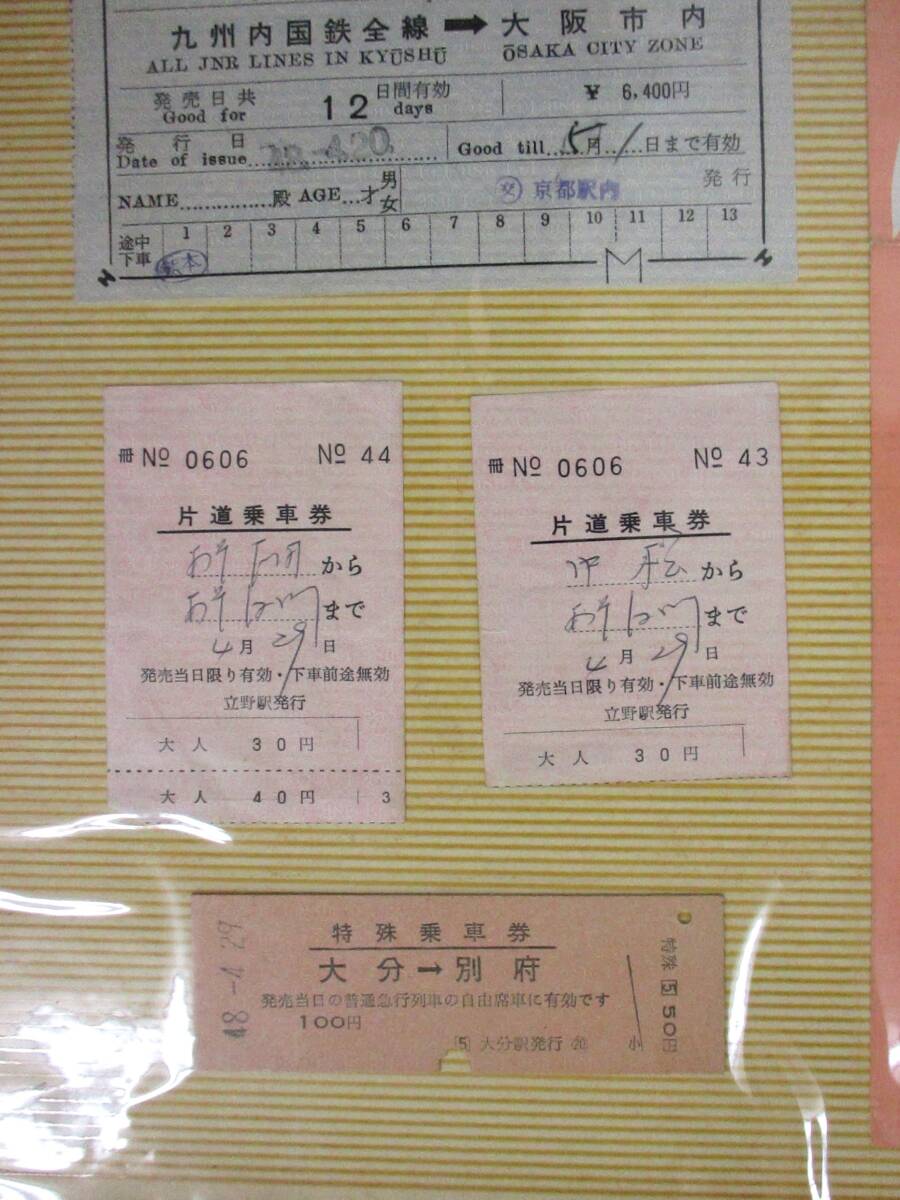 九州内国鉄全線 ➡ 大阪市内
ALL JNR LINES IN KYŪSHŪ ŌSAKA CITY ZONE
発売日共 Good for 12 日間有効 days ¥ 6,400円
発行日 Date of issue 4.20 Good till 5月1日まで有効
NAME 殿 AGE 才 男 女 ㊋ 京都駅内 発行
途中下車 1 2 3 4 5 6 7 8 9 10 11 12 13
冊 № 0606 № 44
片道乗車券
から
まで
4月29日
発売当日限り有効・下車前途無効
立野駅発行
大人 30円
大人 40円 3
冊 № 0606 № 43
片道乗車券
中松から
まで
4月29日
発売当日限り有効・下車前途無効
立野駅発行
大人 30円
48-4.29
特殊乗車券
大分→別府
発売当日の普通急行列車の自由席車に有効です
100円
5 大分駅発行
小
特殊 5 50円